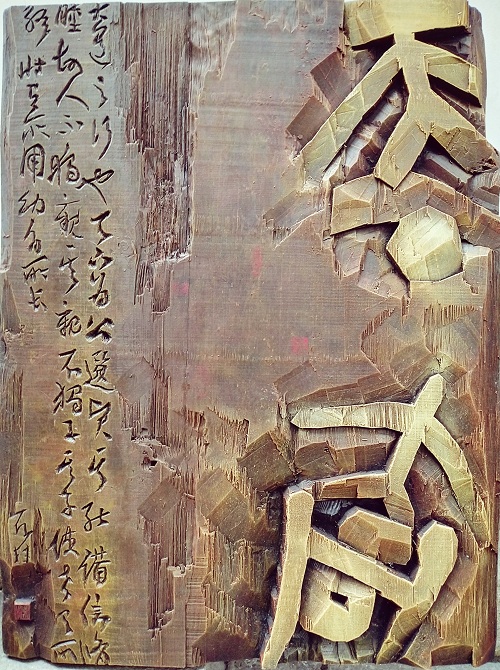 大道之行也天下为公選賢与能講信修
睦故人不獨親其親不獨子其子使老有所
終壮有所用幼有所長